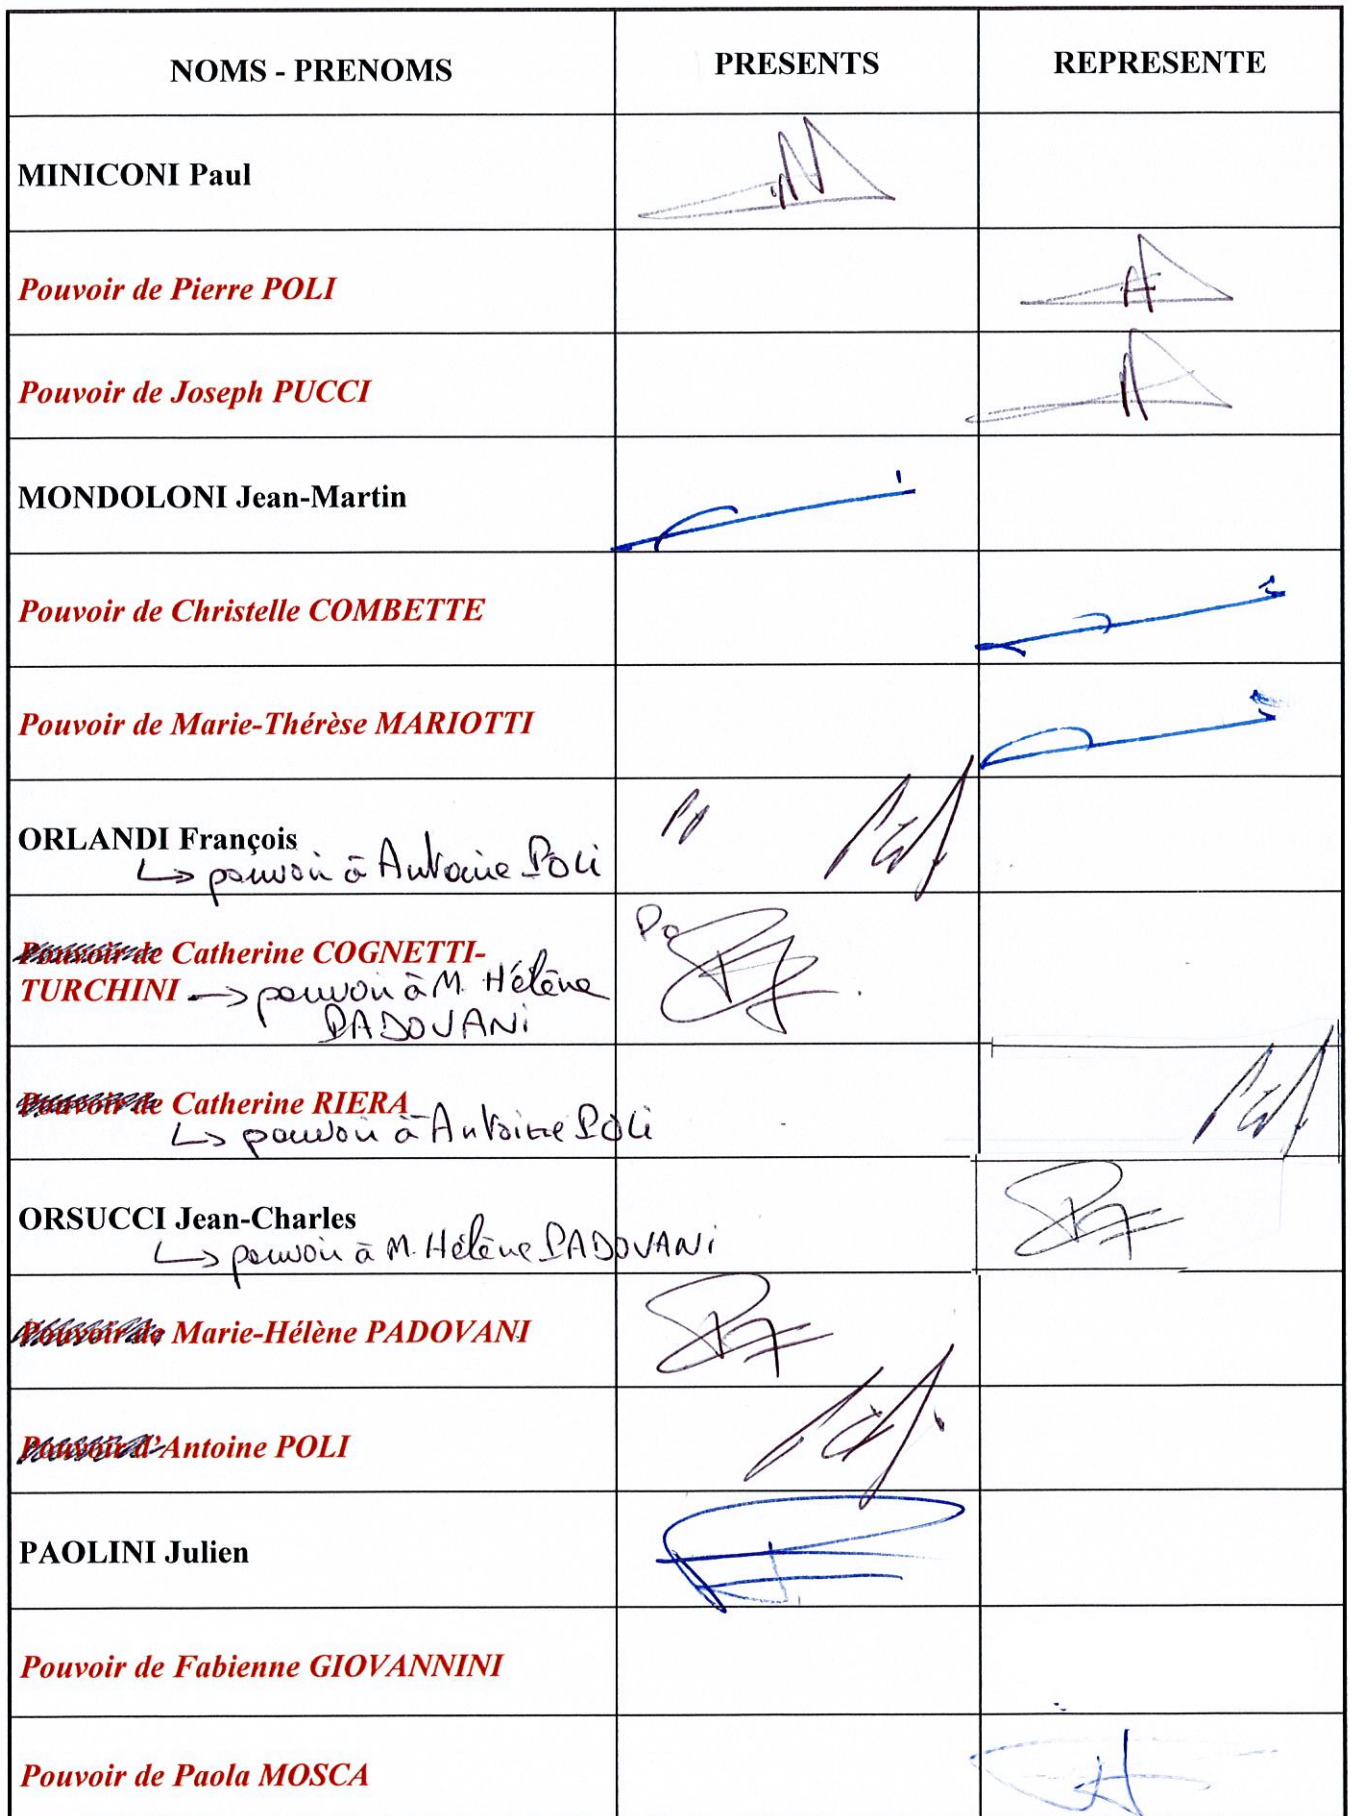 NOMS - PRENOMS PRESENTS REPRESENTE
MINICONI Paul
Pouvoir de Pierre POLI
Pouvoir de Joseph PUCCI
MONDOLONI Jean-Martin
Pouvoir de Christelle COMBETTE
Pouvoir de Marie-Thérèse MARIOTTI
ORLANDI François
↳ pouvoir à Antoine Poli
Pouvoir de Catherine COGNETTI-
TURCHINI → pouvoir à M. Hélène
PADOVANI
Pouvoir de Catherine RIERA
↳ pouvoir à Antoine Poli
ORSUCCI Jean-Charles
↳ pouvoir à M. Hélène PADOVANI
Pouvoir de Marie-Hélène PADOVANI
Pouvoir d'Antoine POLI
PAOLINI Julien
Pouvoir de Fabienne GIOVANNINI
Pouvoir de Paola MOSCA